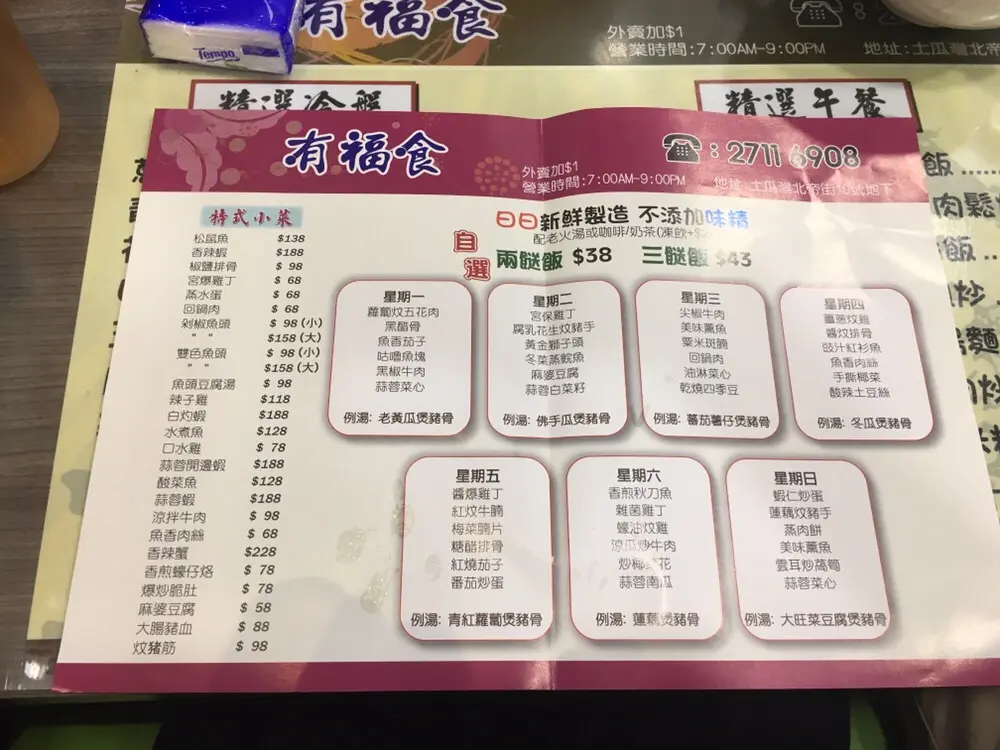 有福食
外賣加$1
營業時間:7:00AM-9:00PM 地址:土瓜灣北帝
Tempo
精選冷盤
精選午餐
有福食
☎:2711 6908
外賣加$1
營業時間:7:00AM-9:00PM 地址:土瓜灣北帝街10號地下
特式小菜
松鼠魚 $138
香辣蝦 $188
椒鹽排骨 $ 98
宮爆雞丁 $ 68
蒸水蛋 $ 68
回鍋肉 $ 68
剁椒魚頭 $ 98 (小)
" " $158 (大)
雙色魚頭 $ 98 (小)
" " $158 (大)
魚頭豆腐湯 $ 98
辣子雞 $118
白灼蝦 $188
水煮魚 $128
口水雞 $ 78
蒜蓉開邊蝦 $188
酸菜魚 $128
蒜蓉蝦 $188
涼拌牛肉 $ 98
魚香肉絲 $ 68
香辣蟹 $228
香煎蠔仔烙 $ 78
爆炒脆肚 $ 78
麻婆豆腐 $ 58
大腸豬血 $ 88
炆豬筋 $ 98
日日新鮮製造 不添加味精
配老火湯或咖啡/奶茶(凍飲+$
自選
兩餸飯 $38 三餸飯 $43
星期一
蘿蔔炆五花肉
黑醋骨
魚香茄子
咕嚕魚塊
黑椒牛肉
蒜蓉菜心
例湯: 老黃瓜煲豬骨
星期二
宮保雞丁
腐乳花生炆豬手
黃金獅子頭
冬菜蒸鯇魚
麻婆豆腐
蒜蓉白菜籽
例湯: 佛手瓜煲豬骨
星期三
尖椒牛肉
美味薰魚
粟米斑腩
回鍋肉
油淋菜心
乾燒四季豆
例湯: 蕃茄薯仔煲豬骨
星期四
薑蔥炆雞
醬炆排骨
豉汁紅衫魚
魚香肉絲
手撕椰菜
酸辣土豆絲
例湯: 冬瓜煲豬骨
星期五
醬爆雞丁
紅炆牛腩
梅菜腩片
糖醋排骨
紅燒茄子
番茄炒蛋
例湯: 青紅蘿蔔煲豬骨
星期六
香煎秋刀魚
雜菌雞丁
蠔油炆雞
涼瓜炒牛肉
炒椰菜花
蒜蓉南瓜
例湯: 蓮藕煲豬骨
星期日
蝦仁炒蛋
蓮藕炆豬手
蒸肉餅
美味薰魚
雲耳炒萵筍
蒜蓉菜心
例湯: 大旺菜豆腐煲豬骨
飯
肉鬆
飯
炒
麵